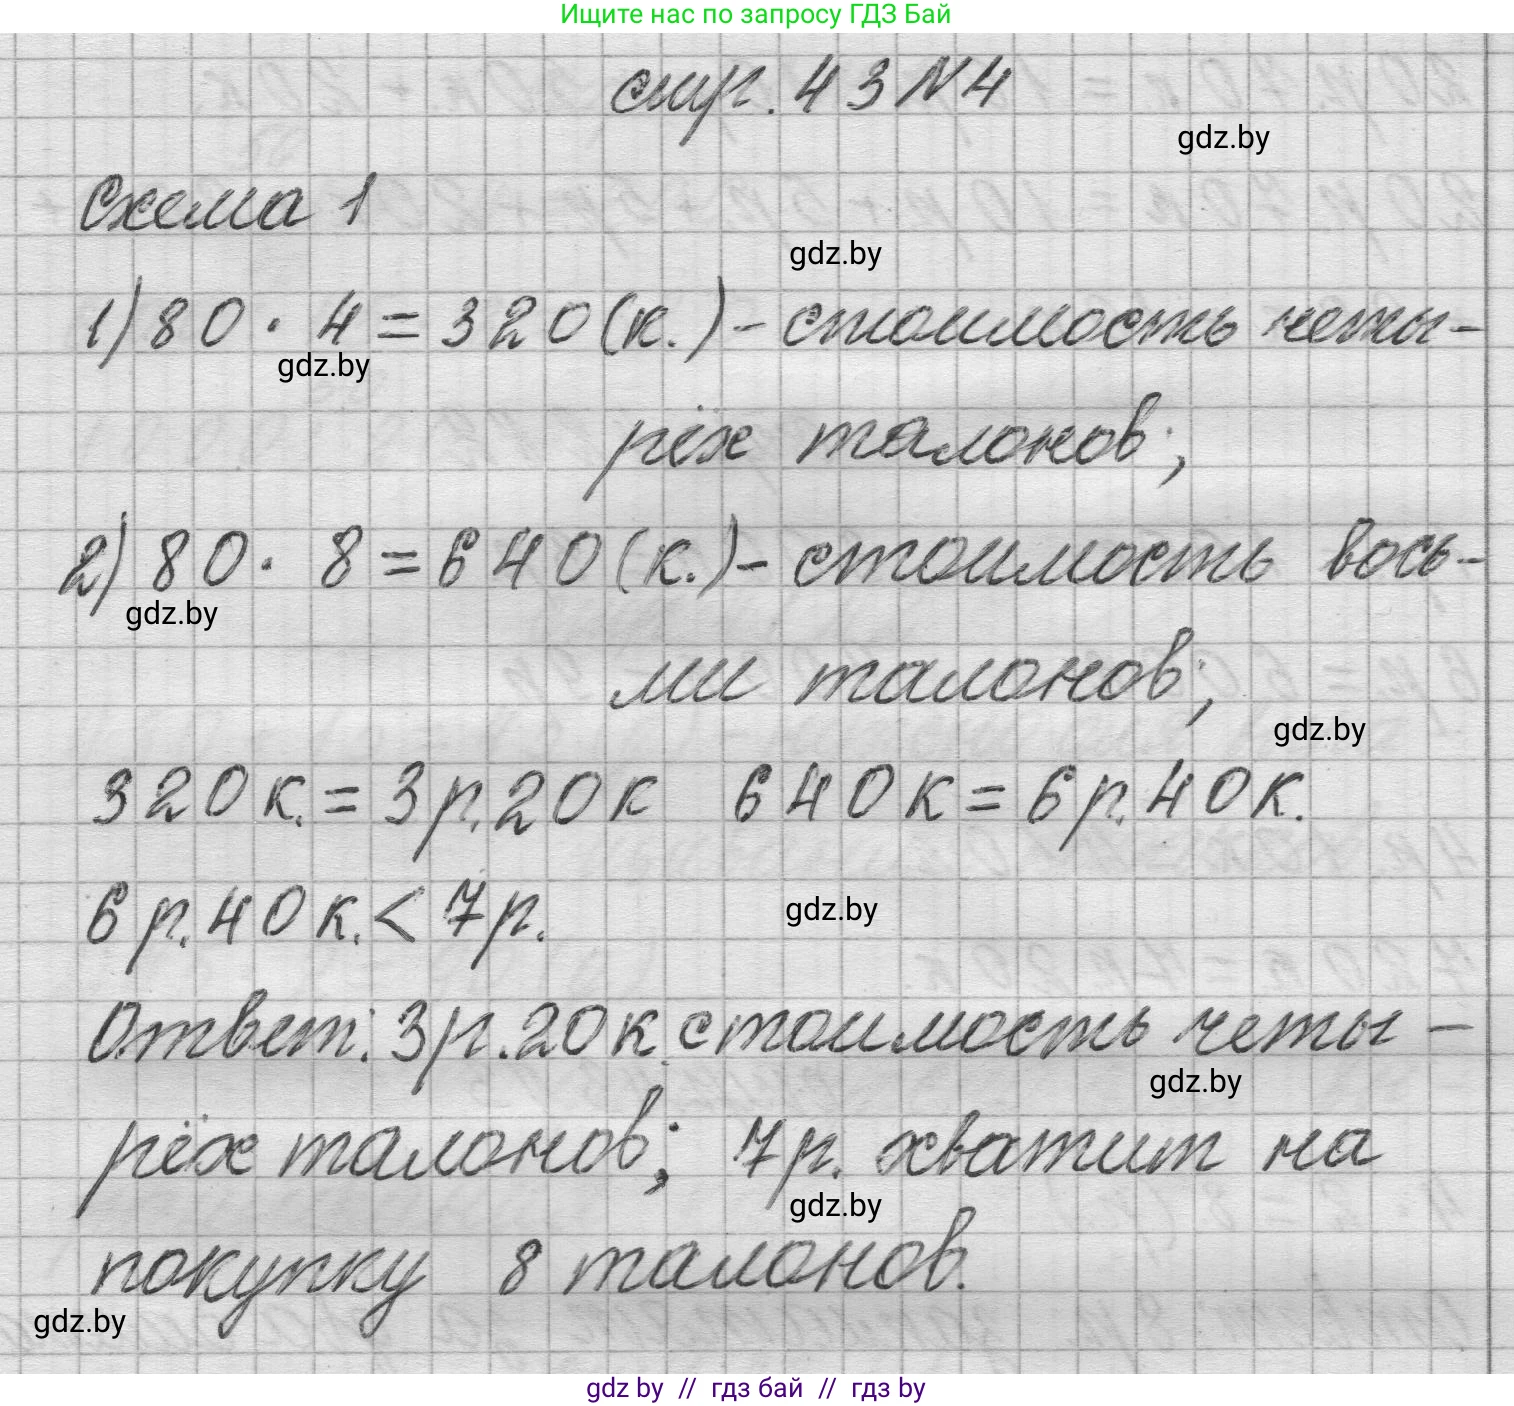 Ищите нас по запросу ГДЗ Бай
стр. 43 N4
gdz.by
Схема 1
gdz.by
1) 80 · 4 = 320 (к.) - стоимость четы-
gdz.by
рёх талонов;
2) 80 · 8 = 640 (к.) - стоимость вось-
gdz.by
ми талонов;
gdz.by
320 к. = 3 р. 20 к 640 к = 6 р. 40 к.
6 р. 40 к. < 7 р.
gdz.by
Ответ: 3 р. 20 к. стоимость четы-
gdz.by
рёх талонов; 7 р. хватит на
gdz.by
покупку 8 талонов.
gdz.by
gdz by // гдз бай // гдз by